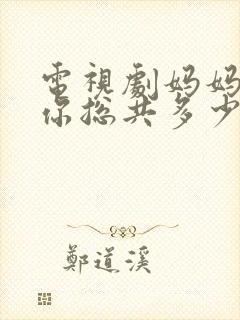 電視劇媽媽
你總共多少
鄭道溪